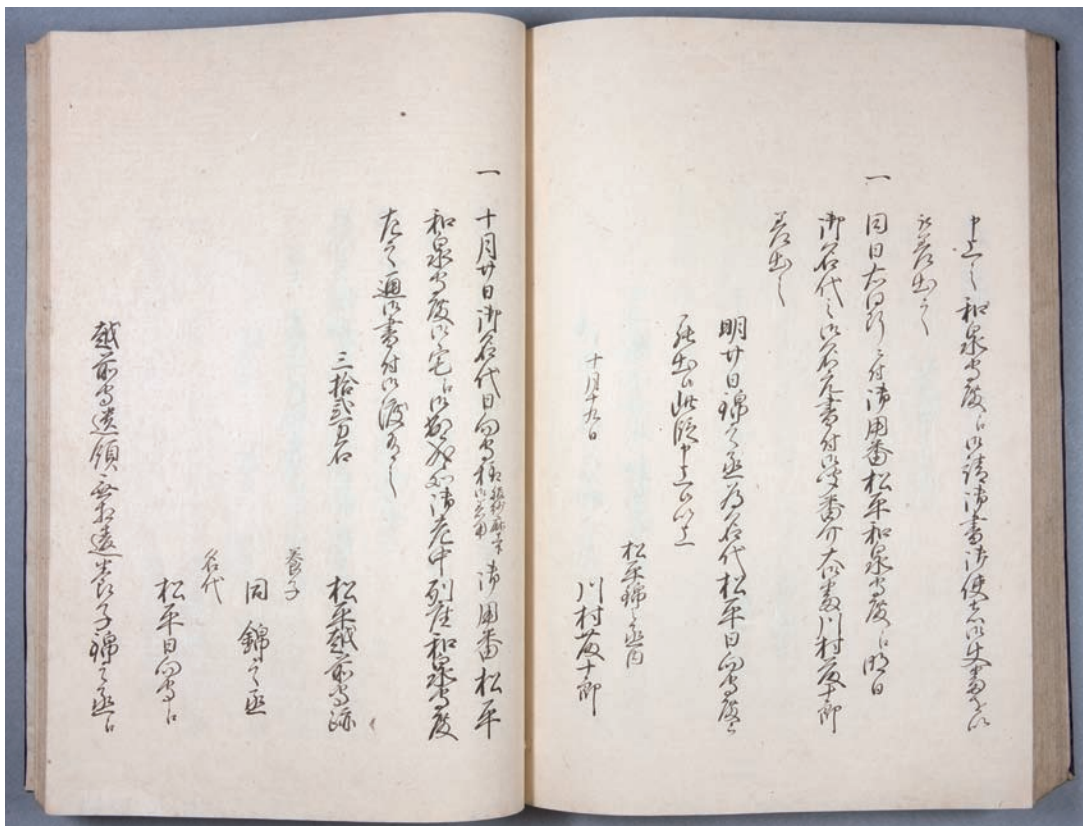 申上ル和泉守殿江御請御書御使者御大書を以
被差出ル
一 同日右同断ニ付御用番松平和泉守殿江明日
御名代之御名元書付御聞番介大谷 川村友十郎
差出ル
明廿日錦之丞為名代松平日向守殿被
罷出候此段申上候以上
十月十九日
松平錦之丞内
川村友十郎
一 十月廿日御名代日向守様 御用番松平
和泉守殿御宅江 御老中列座和泉守殿
左之通御書付御渡有之
三拾弐万石
松平越前守跡
養子
同 錦之丞
名代
松平日向守江
越前守遺領無相違養子錦之丞江